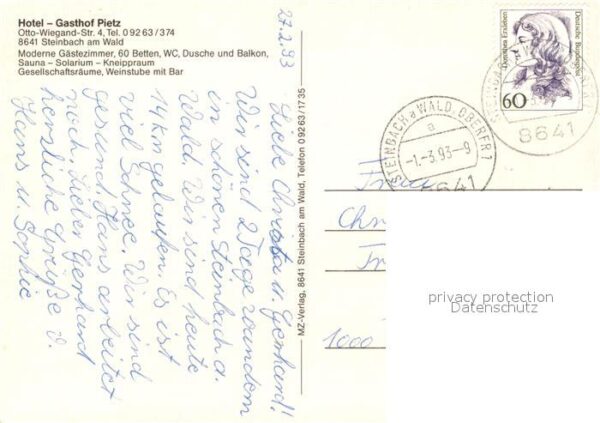 Hotel – Gasthof Pietz
Otto-Wiegand-Str. 4, Tel. 0 92 63 / 374
8641 Steinbach am Wald
Moderne Gästezimmer, 60 Betten, WC, Dusche und Balkon,
Sauna – Solarium – Kneippraum
Gesellschaftsräume, Weinstube mit Bar
27.2.93
Liebe Christa u. Gerhard!
Wir sind 2 Tage wandern
in schönen Steinbach a.
Wald. Wir sind heute
14 km gelaufen. Es ist
viel Schnee. Wir sind
gesund. Hans arbeitet
noch. Lieber Gerhard
herzliche Grüße v.
Hans u. Sophie
MZ-Verlag, 8641 Steinbach am Wald, Telefon 0 92 63 / 17 35
Dorothea Erxleben
Deutsche Bundespost
60
8641
STEINBACH a WALD, OBERFR 1
a
-1.-3.93-9
8641
Frau
Chr
Fr
1000
privacy protection
Datenschutz